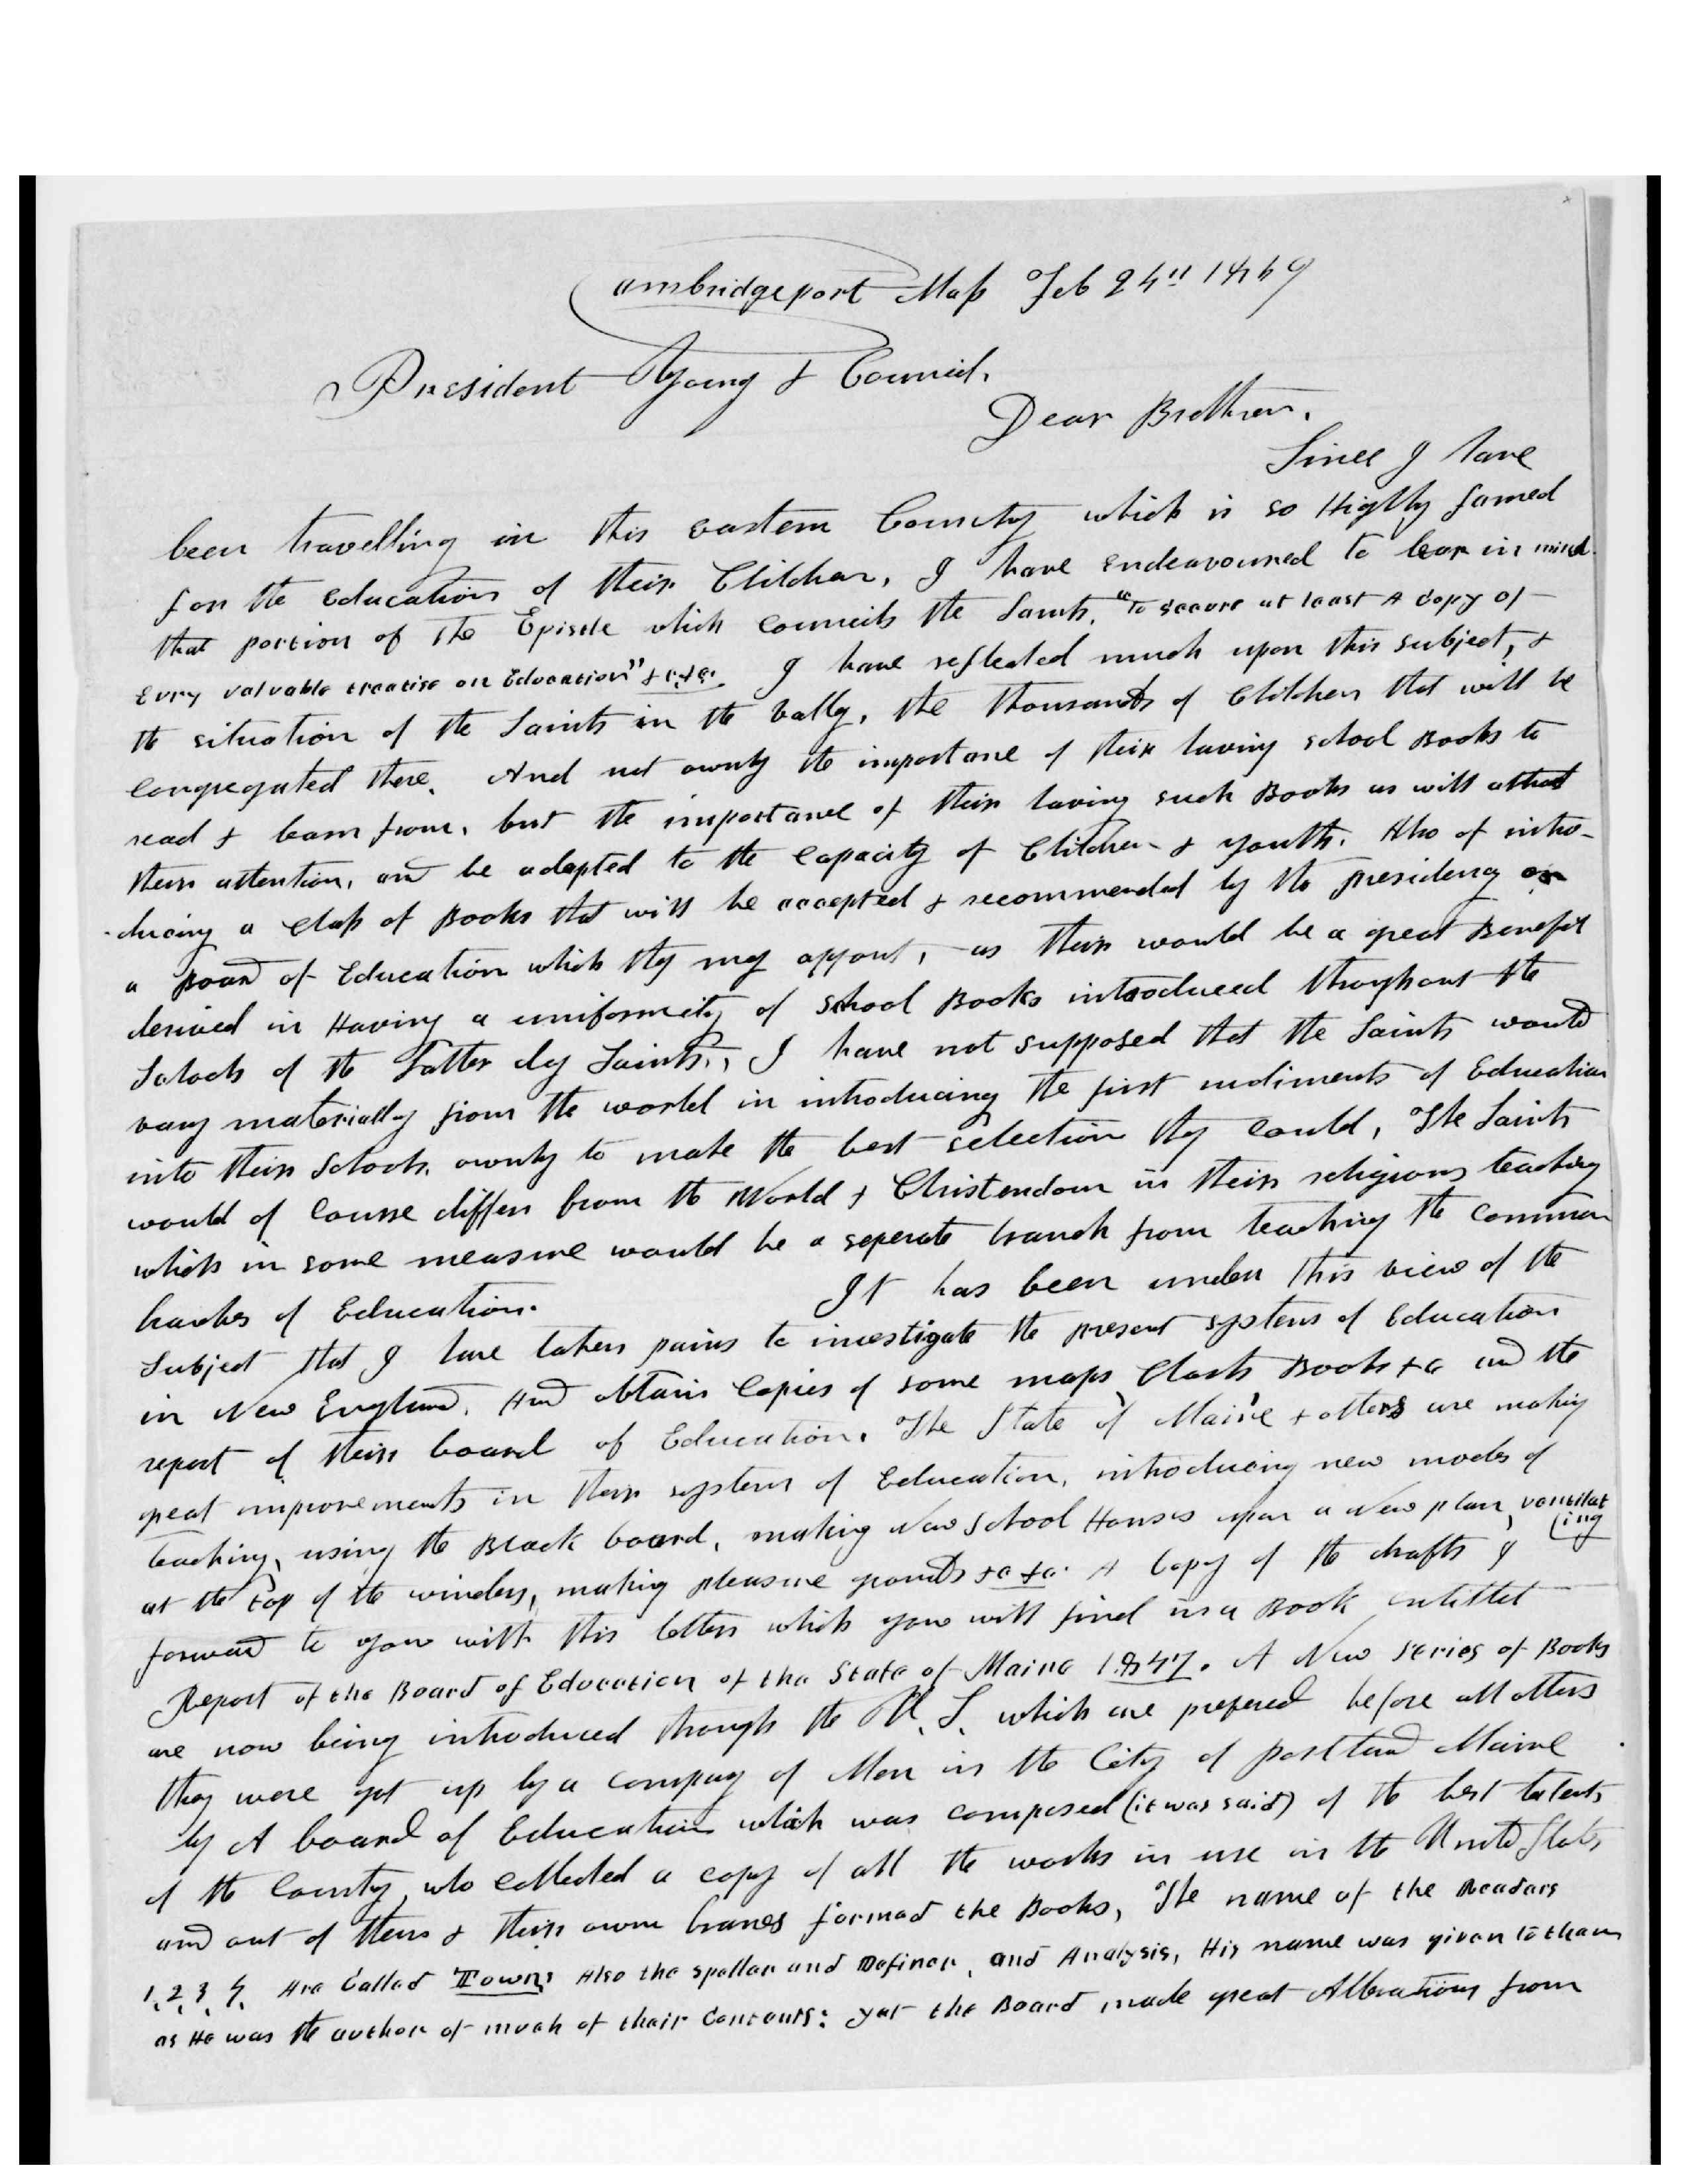 Cambridgeport Mass Feb 24th 1849
President Young & Council,
Dear Brethren.
Since I have
been travelling in this eastern Country which is so Highly famed
for the education of their Children, I have endeavoured to bear in mind
that portion of the Epistle which councils the Saints, "To secure at least A copy of
Evry valuable treatise on Education" &c, &c. I have reflected much upon this subject, &
the situation of the Saints in the vally, the thousands of Children that will be
congregated there. And not ownly the importance of their having school Books to
read & learn from, but the importance of their having such Books as will attract
their attention, and be adapted to the capacity of Children & youth. Also of intro-
-ducing a class of Books that will be accepted & recommended by the presidency or
a Board of Education which they may appoint, as their would be a great Benefit
derived in Having a uniformity of school Books introduced throughout the
Schools of the Latter day Saints., I have not supposed that the Saints would
vary materially from the world in introducing the first rudiments of Education
into their Schools, ownly to make the best selection they could, The Saints
would of course differ from the World & Christendom in their religious teaching
which in some measure would be a seperate branch from teaching the common
branches of Education. It has been under this view of the
Subject that I have taken pains to investigate the present system of Education
in New England, And obtain copies of some maps, Class Books &c and the
report of their board of Education. The State of Maine & others are making
great improvements in their system of Education, introducing new modes of
teaching, using the Black board, making New School Houses upon a New plan, ventilat
ing
at the top of the windows, making pleasure grounds &c &c. A Copy of the drafts I
forward to you with this letter which you will find in a Book entitled
Report of the Board of Education of the State of Maine 1847. A New series of Books
are now being introduced through the U. S. which are prefered before all others
they were got up by a company of Men in the City of Portland Maine
by A board of Education which was composed (it was said) of the best talents
of the Country, who collected a copy of all the works in use in the United States
and out of them & their own branes formed the Books, The name of the Readers
1, 2, 3, 4, Are Called Towns Also the speller and Definer, and Analysis, His name was given to them
as He was the author of much of their Contents: yet the Board made great Alterations from